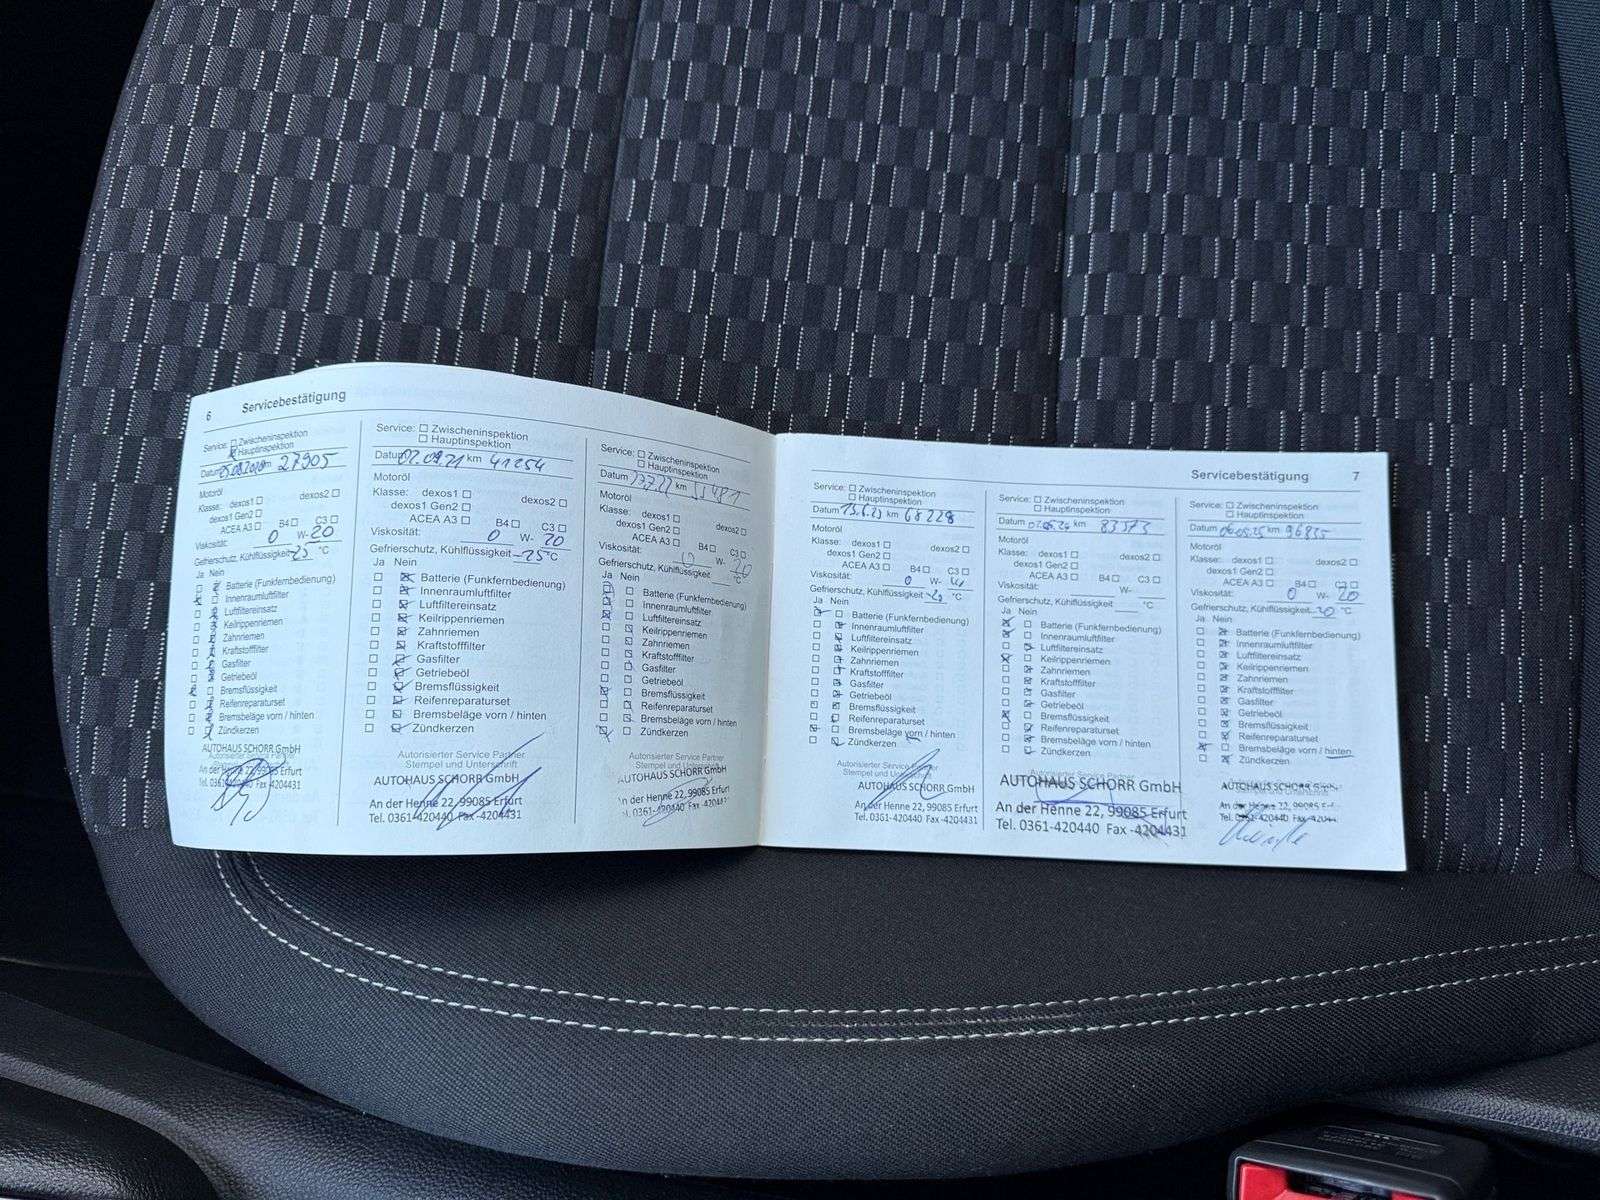 6 Servicebestätigung
Service: Zwischeninspektion
Hauptinspektion
Datum km 27905
Motoröl
Klasse: dexos1 dexos2
dexos1 Gen2
ACEA A3 B4 C3
Viskosität: 0 W- 20
Gefrierschutz, Kühlflüssigkeit -25 °C
Ja Nein
Batterie (Funkfernbedienung)
Innenraumluftfilter
Luftfiltereinsatz
Keilrippenriemen
Zahnriemen
Kraftstofffilter
Gasfilter
Getriebeöl
Bremsflüssigkeit
Reifenreparaturset
Bremsbeläge vorn / hinten
Zündkerzen
AUTOHAUS SCHORR GmbH
An der Henne 22, 99085 Erfurt
Tel. 0361-420440 Fax -4204431
Service: Zwischeninspektion
Hauptinspektion
Datum 02.09.21 km 41254
Motoröl
Klasse: dexos1 dexos2
dexos1 Gen2
ACEA A3 B4 C3
Viskosität: 0 W- 20
Gefrierschutz, Kühlflüssigkeit -25°C
Ja Nein
Batterie (Funkfernbedienung)
Innenraumluftfilter
Luftfiltereinsatz
Keilrippenriemen
Zahnriemen
Kraftstofffilter
Gasfilter
Getriebeöl
Bremsflüssigkeit
Reifenreparaturset
Bremsbeläge vorn / hinten
Zündkerzen
Autorisierter Service Partner
Stempel und Unterschrift
AUTOHAUS SCHORR GmbH
An der Henne 22, 99085 Erfurt
Tel. 0361-420440 Fax -4204431
Service: Zwischeninspektion
Hauptinspektion
Datum km 55481
Motoröl
Klasse: dexos1 dexos2
dexos1 Gen2
ACEA A3 B4 C3
Viskosität: 0 W- 20
Gefrierschutz, Kühlflüssigkeit °C
Ja Nein
Batterie (Funkfernbedienung)
Innenraumluftfilter
Luftfiltereinsatz
Keilrippenriemen
Zahnriemen
Kraftstofffilter
Gasfilter
Getriebeöl
Bremsflüssigkeit
Reifenreparaturset
Bremsbeläge vorn / hinten
Zündkerzen
Autorisierter Service Partner
Stempel und Unterschrift
AUTOHAUS SCHORR GmbH
An der Henne 22, 99085 Erfurt
Tel. 0361-420440 Fax -4204431
Servicebestätigung 7
Service: Zwischeninspektion
Hauptinspektion
Datum 15.6.23 km 68228
Motoröl
Klasse: dexos1 dexos2
dexos1 Gen2
ACEA A3 B4 C3
Viskosität: 0 W-
Gefrierschutz, Kühlflüssigkeit °C
Ja Nein
Batterie (Funkfernbedienung)
Innenraumluftfilter
Luftfiltereinsatz
Keilrippenriemen
Zahnriemen
Kraftstofffilter
Gasfilter
Getriebeöl
Bremsflüssigkeit
Reifenreparaturset
Bremsbeläge vorn / hinten
Zündkerzen
Autorisierter Service Partner
Stempel und Unterschrift
AUTOHAUS SCHORR GmbH
An der Henne 22, 99085 Erfurt
Tel. 0361-420440 Fax -4204431
Service: Zwischeninspektion
Hauptinspektion
Datum km 83573
Motoröl
Klasse: dexos1 dexos2
dexos1 Gen2
ACEA A3 B4 C3
Viskosität: W-
Gefrierschutz, Kühlflüssigkeit °C
Ja Nein
Batterie (Funkfernbedienung)
Innenraumluftfilter
Luftfiltereinsatz
Keilrippenriemen
Zahnriemen
Kraftstofffilter
Gasfilter
Getriebeöl
Bremsflüssigkeit
Reifenreparaturset
Bremsbeläge vorn / hinten
Zündkerzen
AUTOHAUS SCHORR GmbH
An der Henne 22, 99085 Erfurt
Tel. 0361-420440 Fax -4204431
Service: Zwischeninspektion
Hauptinspektion
Datum 06.05.25 km 96835
Motoröl
Klasse: dexos1 dexos2
dexos1 Gen2
ACEA A3 B4 C3
Viskosität: 0 W- 20
Gefrierschutz, Kühlflüssigkeit °C
Ja Nein
Batterie (Funkfernbedienung)
Innenraumluftfilter
Luftfiltereinsatz
Keilrippenriemen
Zahnriemen
Kraftstofffilter
Gasfilter
Getriebeöl
Bremsflüssigkeit
Reifenreparaturset
Bremsbeläge vorn / hinten
Zündkerzen
AUTOHAUS SCHORR GmbH
An der Henne 22, 99085
Tel. 0361-420440 Fax